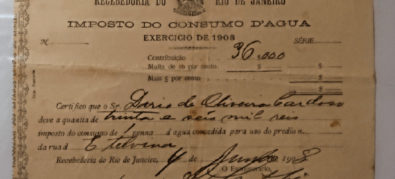 RECEBEDORIA DO RIO DE JANEIRO
IMPOSTO DO CONSUMO D'AGUA
EXERCICIO DE 1908
N. SERIE
Contribuição 36.000
Multa de 10 por cento $
Mais 5 por cento $
Certifico que o Sr. Dario de Oliveira Cardoso
deve a quantia de trinta e seis mil reis
imposto do consumo de 1 penna d'agua concedida para uso do predio n.
da rua Etelvina
Recebedoria do Rio de Janeiro, 4 de Junho 1908
O Escripturario